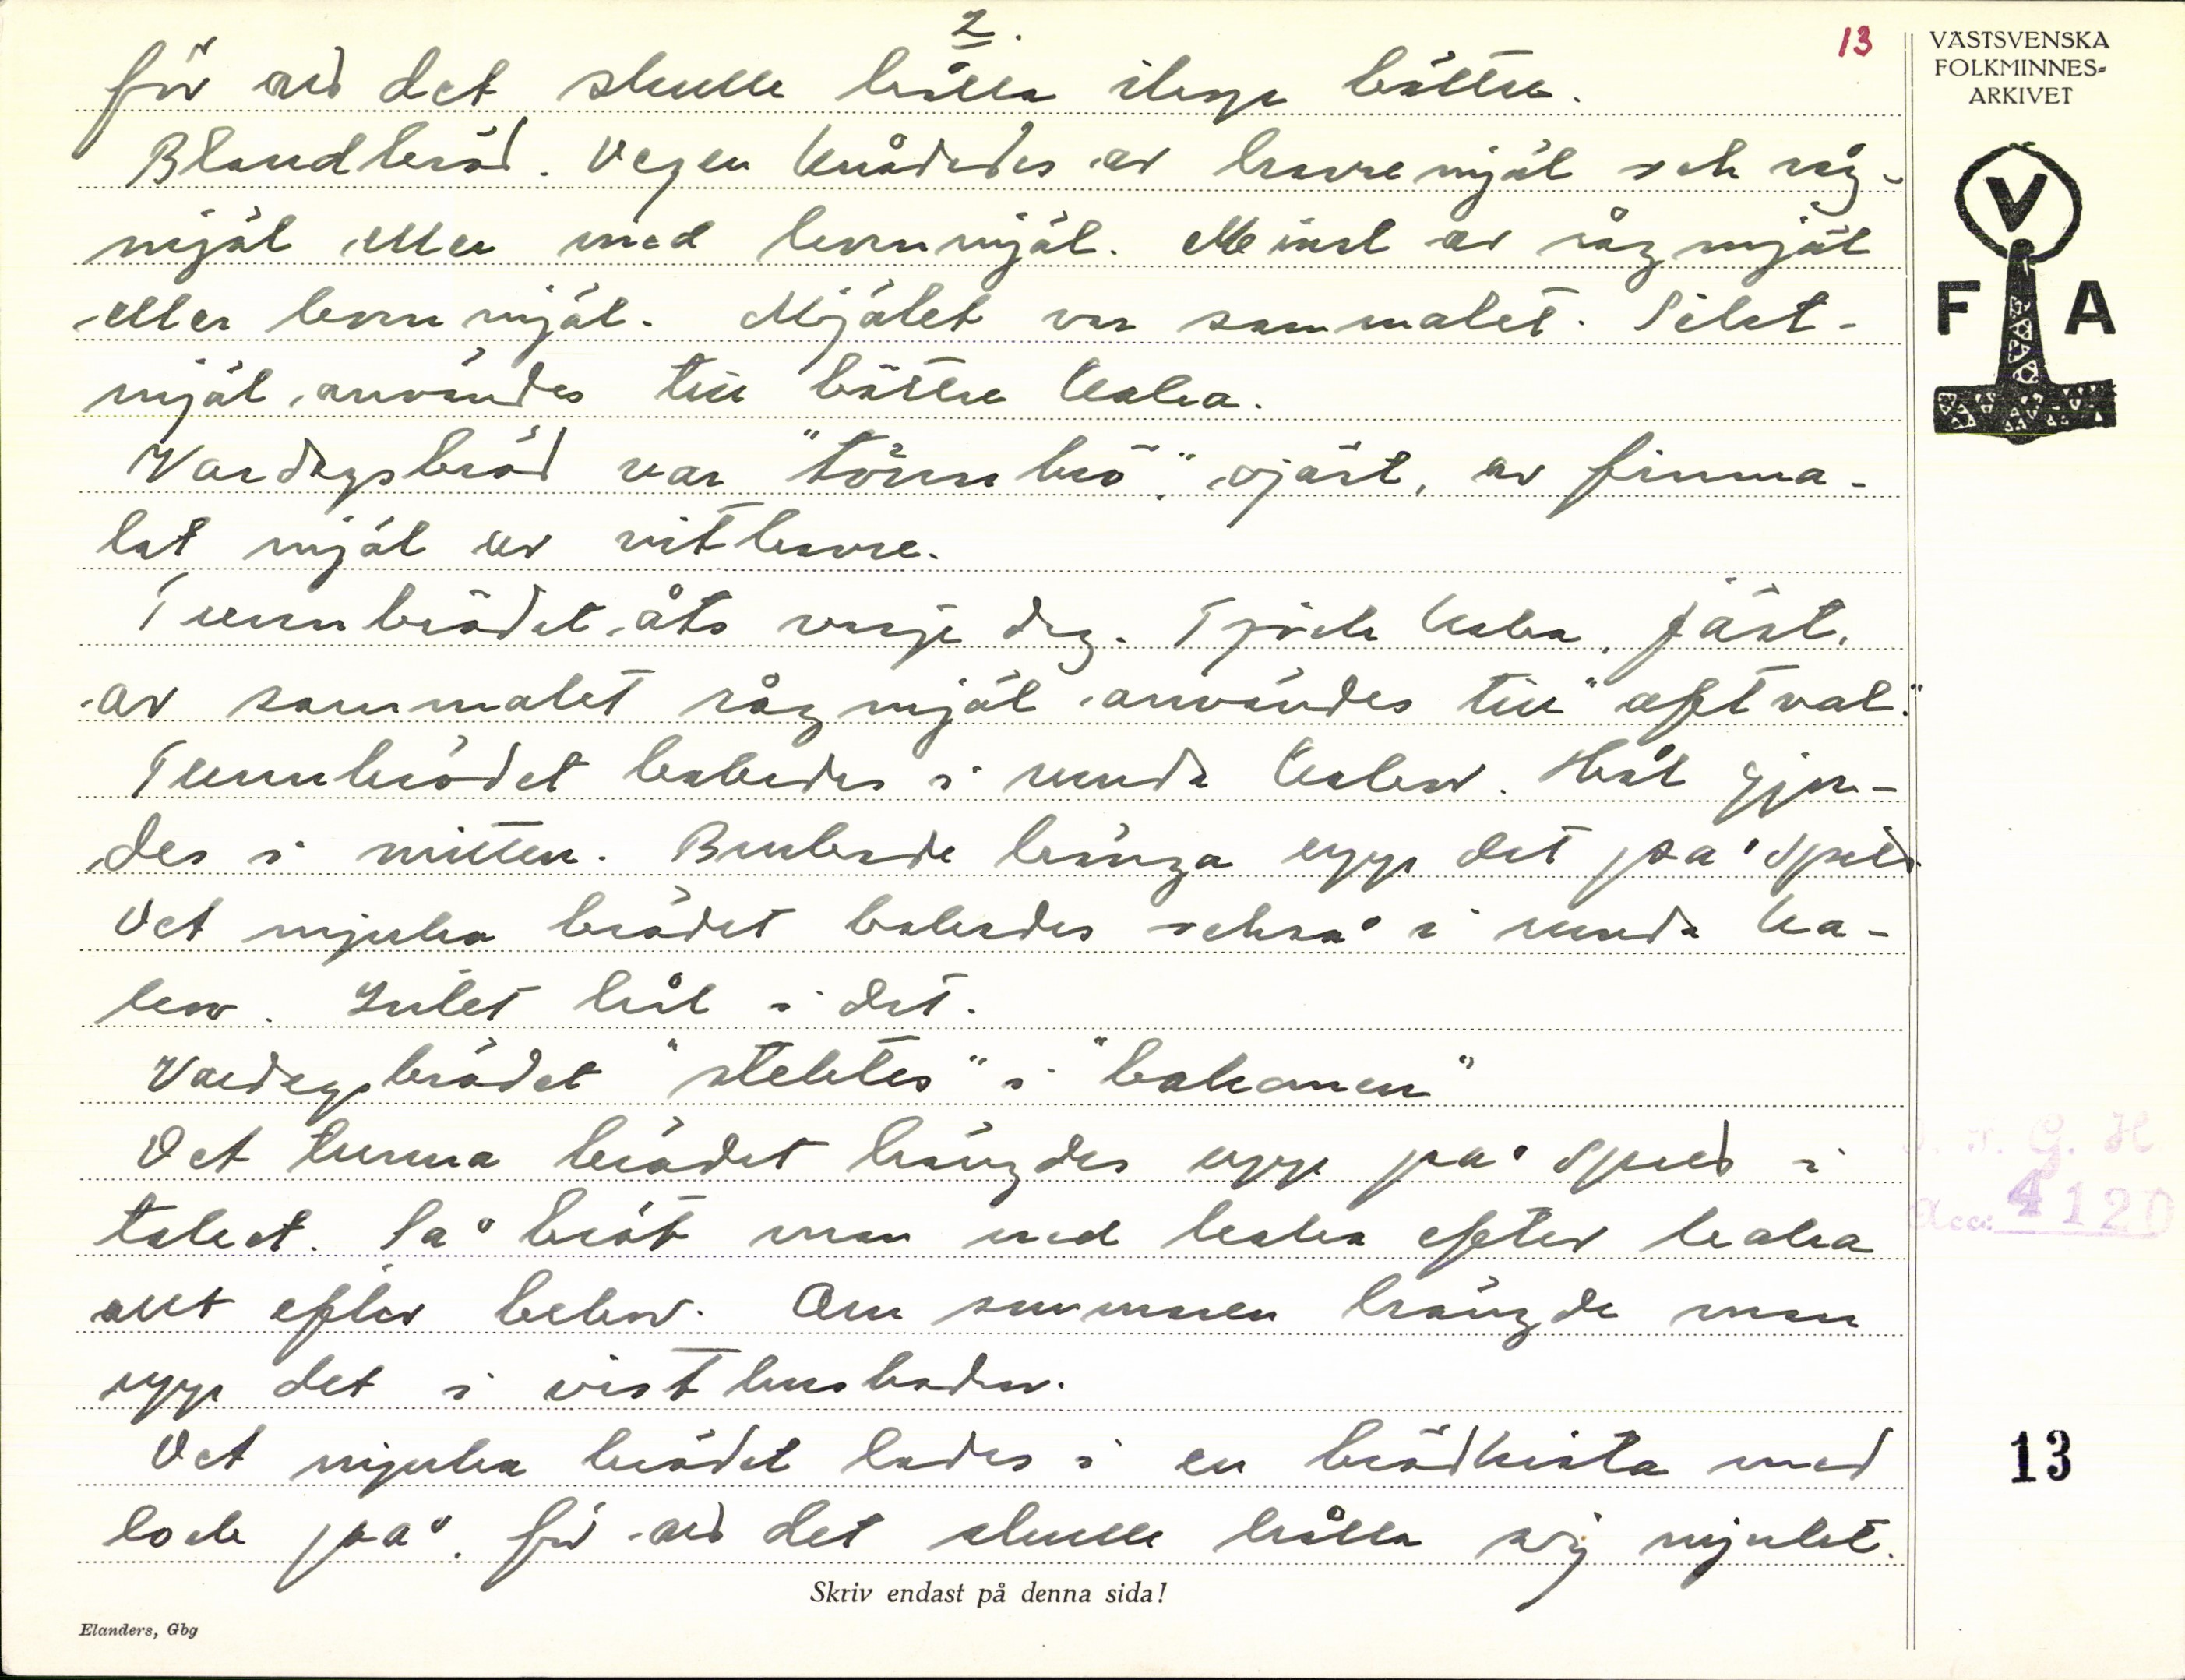 2.
13
för att det skulle hålla ihop bättre.
Blandbröd. Degen knådades av havremjöl och råg-
mjöl eller med kornmjöl. Minst av rågmjöl
eller kornmjöl. Mjölet var sammalet. Siktat-
mjöl användes till bättre kaka.
Vardagsbröd var "tönnbrö", ojäst, av finma-
lat mjöl av vithavre.
Tunnbrödet åts varje dag. Tjock kaka, jäst,
av sammalet rågmjöl användes till "aftval."
Tunnbrödet bakades i runda kakor. Hål gjor-
des i mitten. Brukade hänga upp det på spett
Det mjuka brödet bakades också i runda ka-
kor. Intet hål i det.
Vardagsbrödet "stektes" i "bakomen"
Det tunna brödet hängdes upp på spett i
taket. Så bröt man ned kaka efter kaka
allt efter behov. Om sommaren hängde man
upp det i visthusboden.
Det mjuka brödet lades i en brödkista med
lock på, för att det skulle hålla sig mjukt.
Skriv endast på denna sida!
Elanders, Gbg
VÄSTSVENSKA
FOLKMINNES-
ARKIVET
V
F A
I. F. G. H
Acc: 4120
13